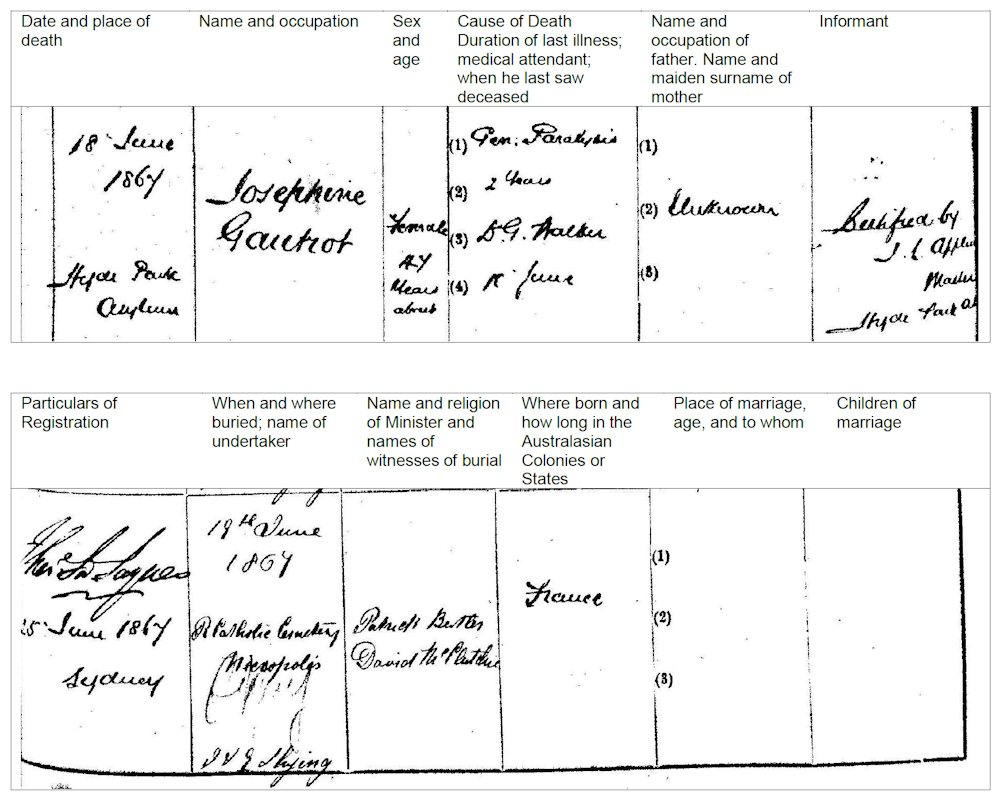 Date and place of
death
Name and occupation
Sex
and
age
Cause of Death
Duration of last illness;
medical attendant;
when he last saw
deceased
Name and
occupation of
father. Name and
maiden surname of
mother
Informant
18 June
1867
Hyde Park
Asylum
Josephine
Gautrot
Female
47
Years
about
(1) Gen. Paralysis
(2) 2 Years
(3) D. G. Walker
(4) June
(1)
(2) Unknown
(3)
Certified by
Hyde Park
Particulars of
Registration
When and where
buried; name of
undertaker
Name and religion
of Minister and
names of
witnesses of burial
Where born and
how long in the
Australasian
Colonies or
States
Place of marriage,
age, and to whom
Children of
marriage
25 June 1867
Sydney
19th June
1867
R Catholic Cemetery
Necropolis
Patrick Butler
David
France
(1)
(2)
(3)